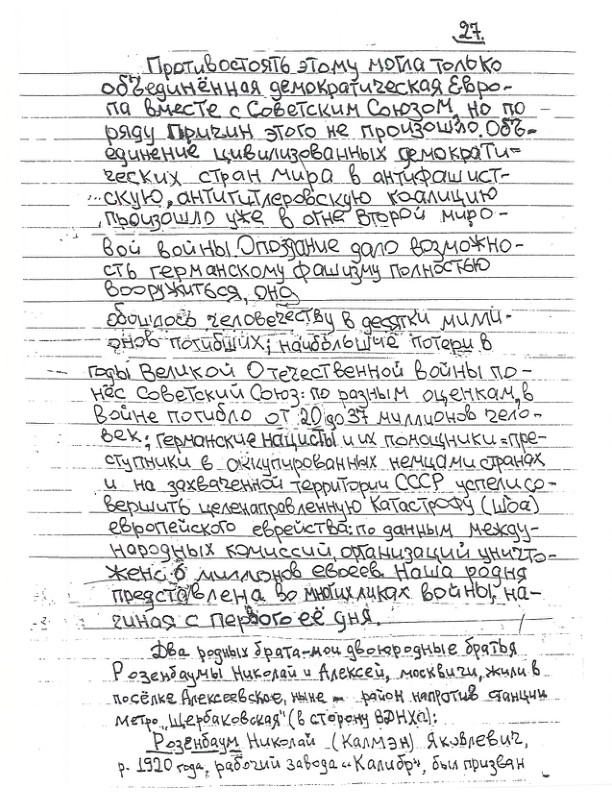 27.
Противостоять этому могла только
объединённая демократическая Евро-
па вместе с Советским Союзом, но по
ряду Причин этого не произошло. Объ-
единение цивилизованных демократи=
ческих стран мира в антифашист-
скую, антигитлеровскую коалицию
произошло уже в огне второй миро-
вой войны. Опоздание дало возможно-
сть германскому фашизму полностью
вооружиться, оно
обошлось человечеству в десятки милли-
онов погибших; наибольшие потери в
годы Великой Отечественной войны по-
нёс Советский Союз: по разным оценкам, в
войне погибло от 20 до 37 миллионов чело-
век; германские нацисты и их помощники=пре-
ступники в оккупированных немцами странах
и на захваченной территории СССР успели со-
вершить целенаправленную Катастрофу (Шоа)
европейского еврейства: по данным между-
народных комиссий, организаций уничто-
жено 6 миллионов евреев. Наша родня
представлена во многих ликах войны, на-
чиная с первого её дня.
Два родных брата-мои двоюродные братья
Розенбаумы Николай и Алексей, москвичи, жили в
посёлке Алексеевское, ныне - район напротив станции
метро "Щербаковская" (в сторону ВДНХа):
Розенбаум Николай (Калмэн) Яковлевич,
р. 1920 года, рабочий завода "Калибр", был призван